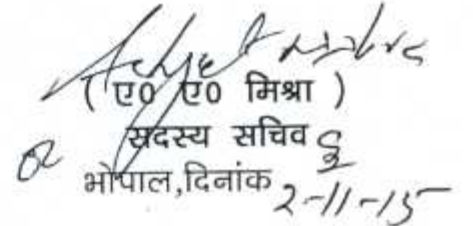 ( ए0 ए0 मिश्रा )
सदस्य सचिव
भोपाल,दिनांक 2-11-15